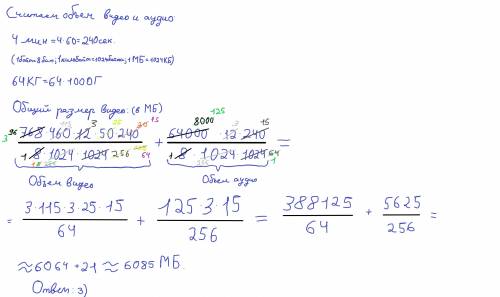 Считаем объем видео и аудио
4 мин = 4·60 = 240 сек.
(1 байт = 8 бит; 1 килобайт = 1024 байта; 1 МБ = 1024 КБ)
64 КГ = 64·1000 Г
Общий размер видео: (в МБ)
768·460·12·50·240 / 8·1024·1024 + 64000·12·240 / 8·1024·1024 =
Объем видео
Объем аудио
= 3·115·3·25·15 / 64 + 125·3·15 / 256 = 388125 / 64 + 5625 / 256 =
≈ 6064 + 21 ≈ 6085 МБ.
Ответ: 3)